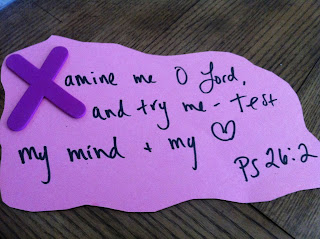 Xamine me O Lord,
and try me - test
my mind + my ♡
Ps 26:2